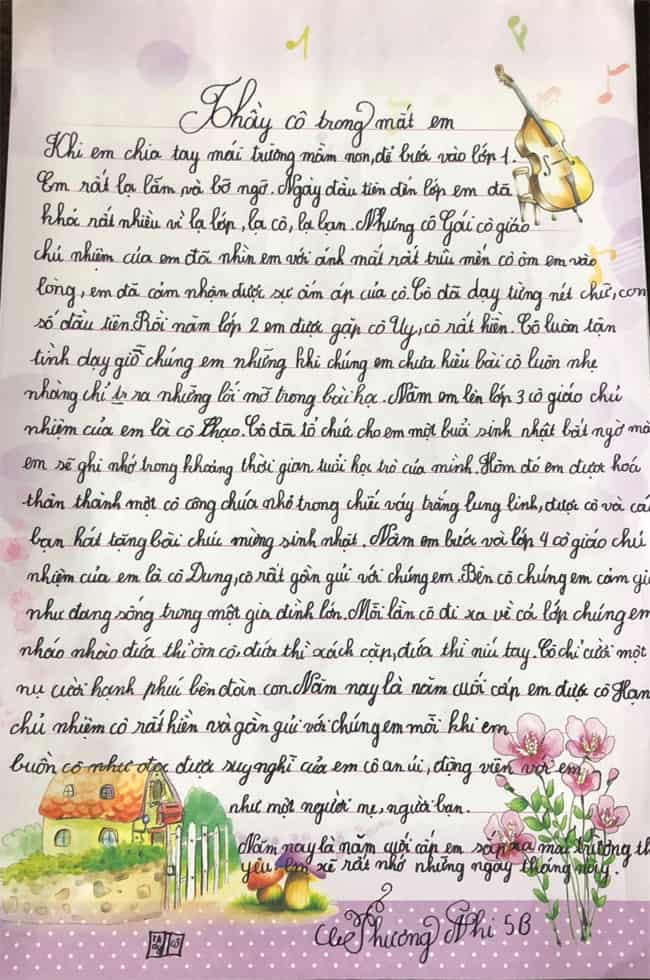 Thầy cô trong mắt em
Khi em chia tay mái trường mầm non, để bước vào lớp 1.
Em rất lạ lẫm, và bỡ ngỡ. Ngày đầu tiên đến lớp em đã
khóc rất nhiều vì lạ lớp, lạ cô, lạ bạn. Nhưng cô Gái cô giáo
chủ nhiệm của em đã nhìn em với ánh mắt rất trìu mến cô ôm em vào
lòng, em đã cảm nhận được sự ấm áp của cô. Cô đã dạy từng nét chữ, con
số đầu tiên. Rồi năm lớp 2 em được gặp cô Uy, cô rất hiền. Cô luôn tận
tình dạy giỗ chúng em những khi chúng em chưa hiểu bài cô luôn nhẹ
nhàng chỉ ra những lối mở trong bài học. Năm em lên lớp 3 cô giáo chủ
nhiệm của em là cô Thao. Cô đã tổ chức cho em một buổi sinh nhật bất ngờ mà
em sẽ ghi nhớ trong khoảng thời gian tuổi học trò của mình. Hôm đó em được hoá
thân thành một cô công chúa nhỏ trong chiếc váy trắng lung linh, được cô và cá
bạn hát tặng bài chúc mừng sinh nhật. Năm em bước và lớp 4 cô giáo chủ
nhiệm của em là cô Dung, cô rất gần gũi với chúng em. Bên cô chúng em cảm gi
như đang sống trong một gia đình lớn. Mỗi lần cô đi xa về cả lớp chúng em
nháo nhào đứa thì ôm cô, đứa thì xách cặp, đứa thì níu tay. Cô chỉ cười một
nụ cười hạnh phú bên đàn con. Năm nay là năm cuối cấp em được cô Hạn
chủ nhiệm cô rất hiền và gần gũi với chúng em mỗi khi em
buồn cô như đọc được suy nghĩ của em cô an ủi, động viên với em
như một người mẹ, người bạn.
Năm nay là năm cuối cấp em sắp xa mái trường th
yêu em xẽ rất nhớ những ngày tháng này.
Phương Nhi 5B